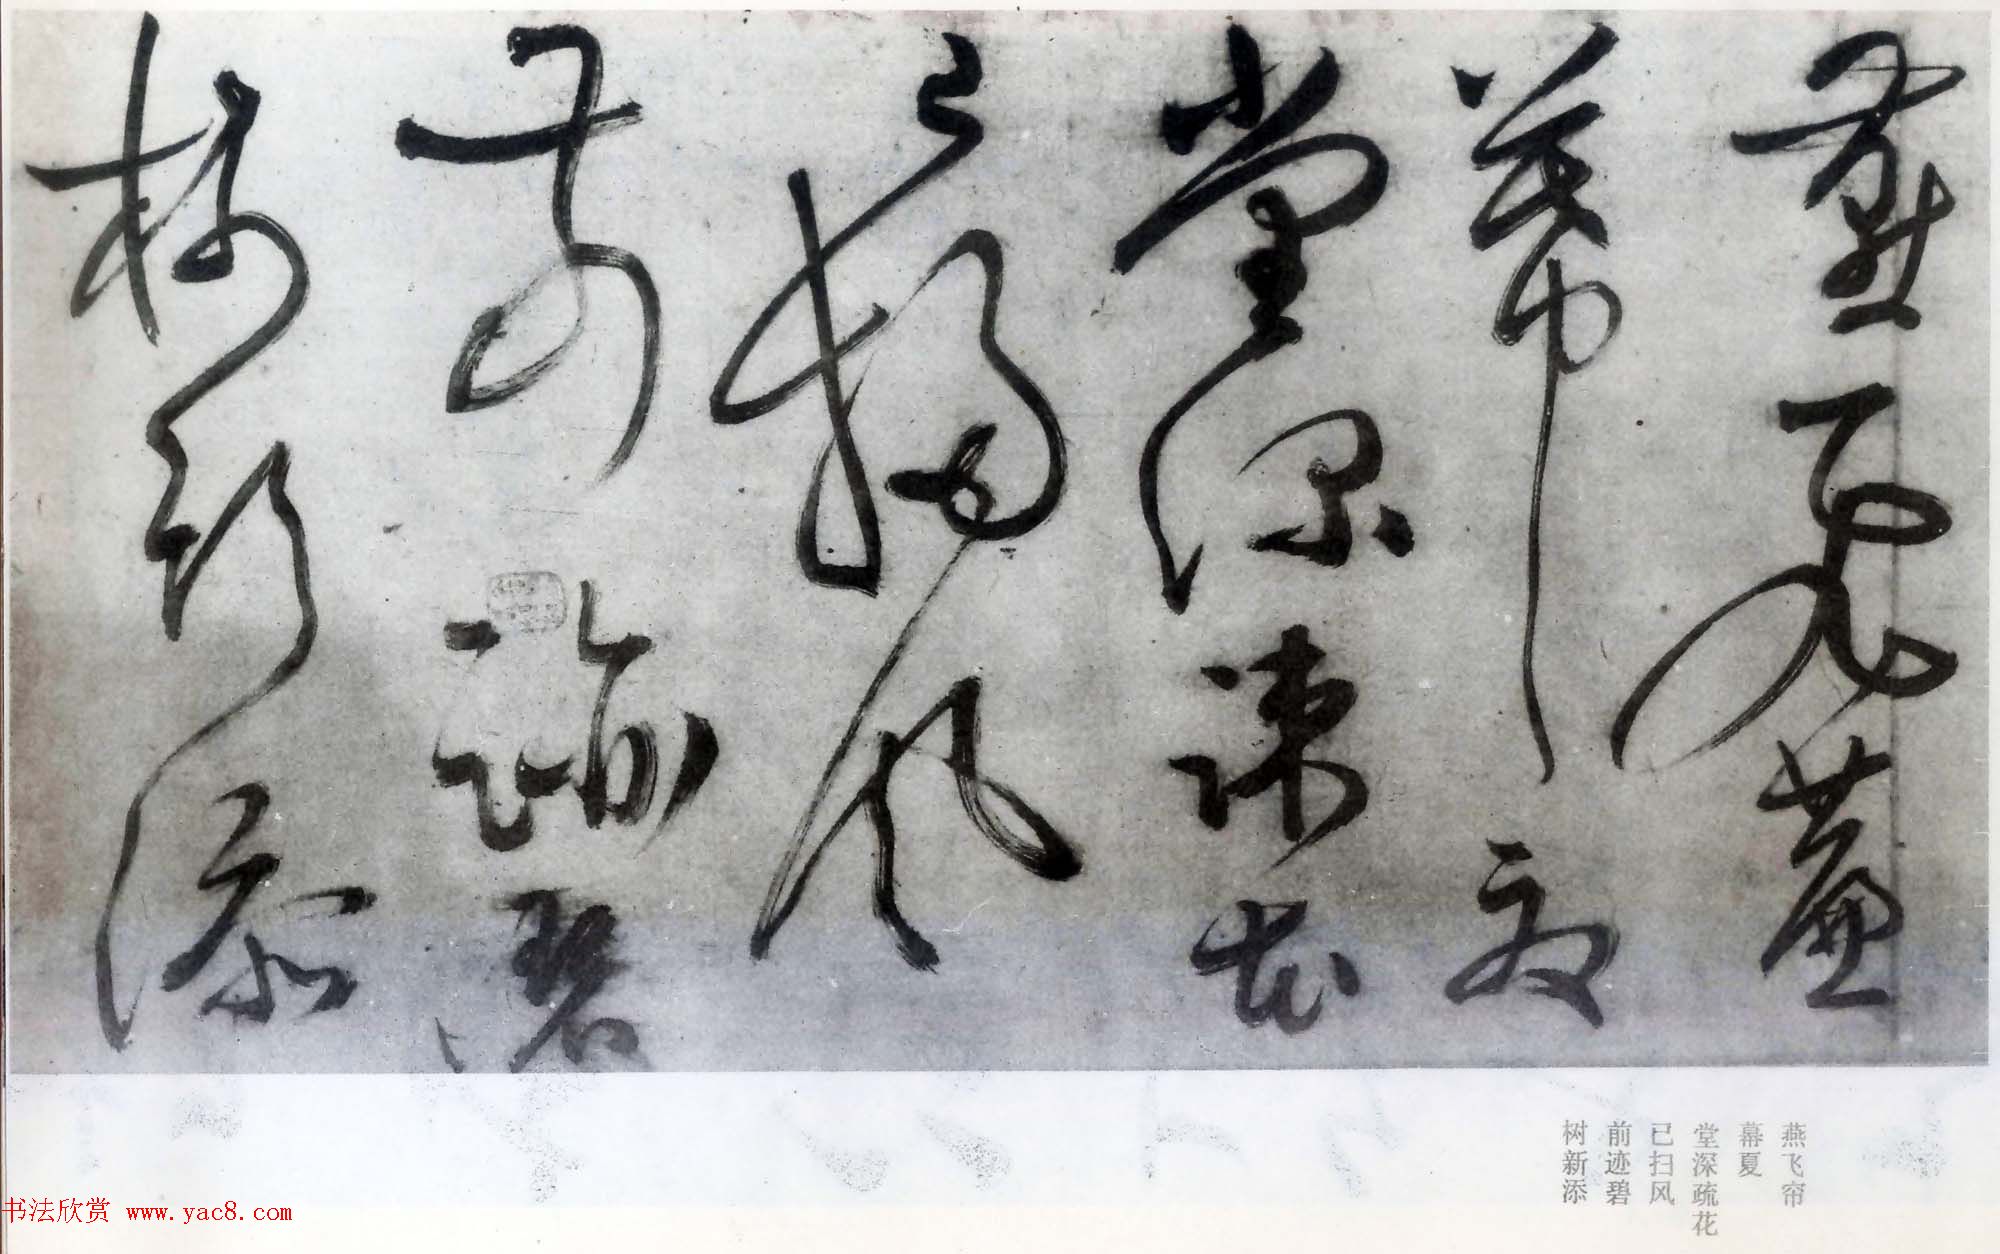 燕飛簾
幕夏
堂深疎花
已掃風
前跡碧
樹新添
燕飞帘
幕夏
堂深疏花
已扫风
前迹碧
树新添
书法欣赏 www.yac8.com